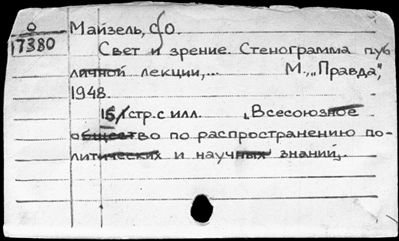 О
17380
Майзель, С.О.
Свет и зрение. Стенограмма пуб
личной лекции,... М.,„Правда",
1948.
15 стр. с илл. „Всесоюзное
общество по распространению по-
литических и научных знаний„.